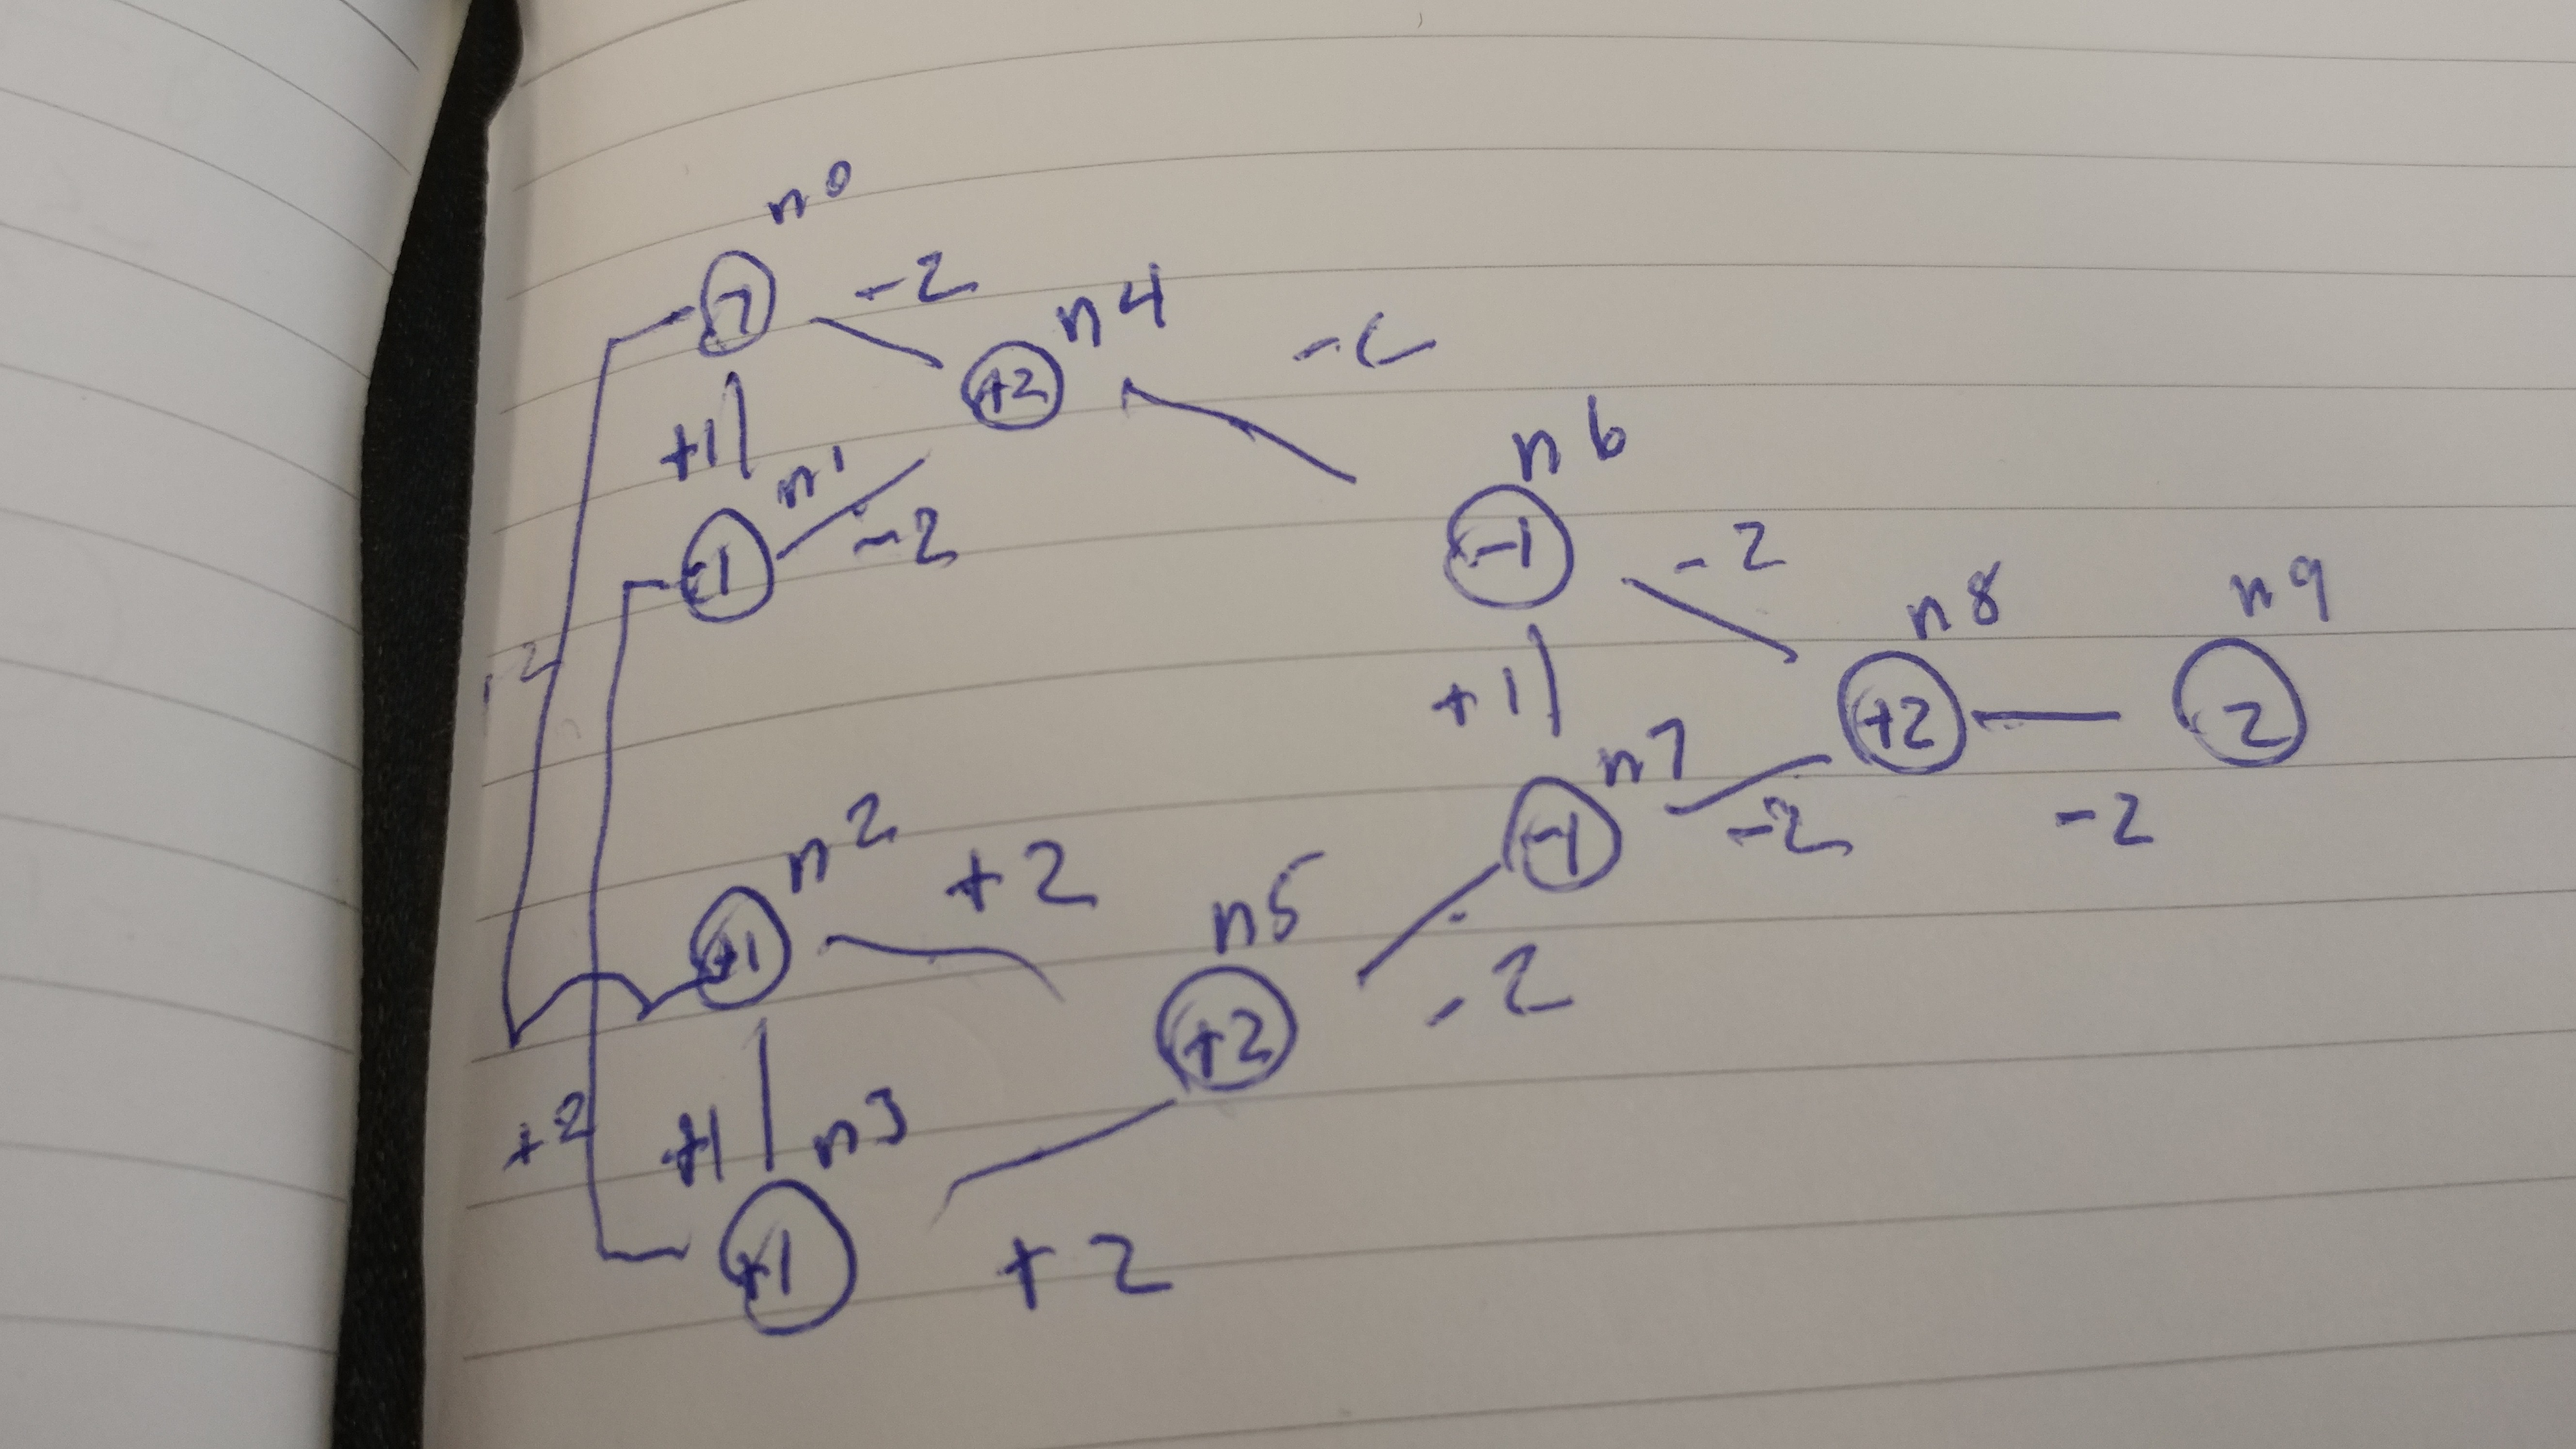 n0
-1 -2
n4
+2 -2
+1
n1
-1 -2
n6
-1 -2
n8
n9
+2
+1
+2 2
n7
-1 -2 -2
n2
+2
+1
n5
+2 -2
+2
+1
n3
+1
+2